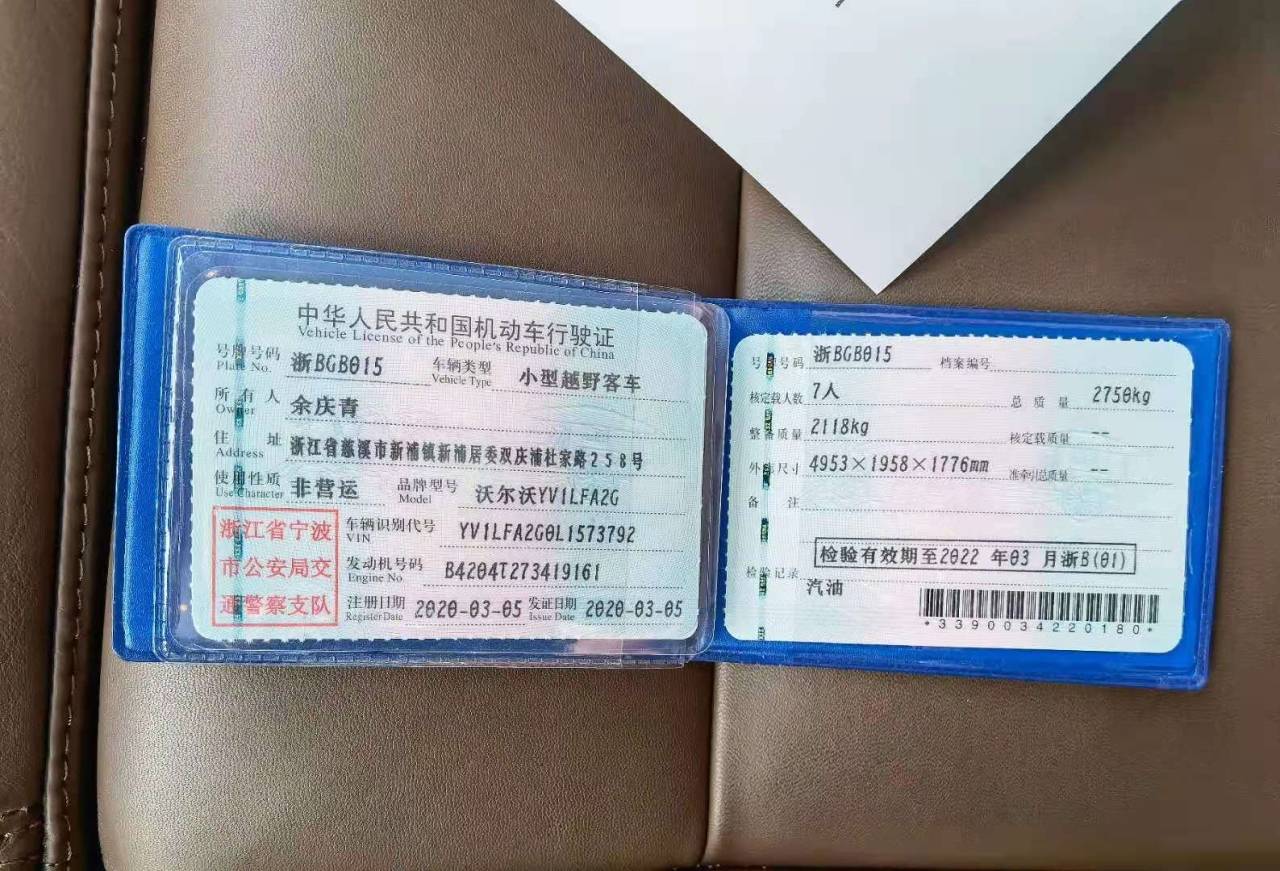 中华人民共和国机动车行驶证
Vehicle License of the People's Republic of China
号牌号码 浙BGB015 车辆类型 小型越野客车
Plate No. Vehicle Type
所有人 余庆青
Owner
住址 浙江省慈溪市新浦镇新浦居委双庆浦杜家路258号
Address
使用性质 非营运 品牌型号 沃尔沃YV1LFA2G
Use Character Model
浙江省宁波
市公安局交
通警察支队
车辆识别代号 YV1LFA2G0L1573792
VIN
发动机号码 B4204T273419161
Engine No.
注册日期 2020-03-05 发证日期 2020-03-05
Register Date Issue Date
号牌号码 浙BGB015 档案编号
核定载人数 7人 总质量 2750kg
整备质量 2118kg 核定载质量 --
外廓尺寸 4953×1958×1776mm 准牵引总质量 --
备注
检验有效期至2022 年03 月浙B(01)
检验记录
汽油
*3390034220180*